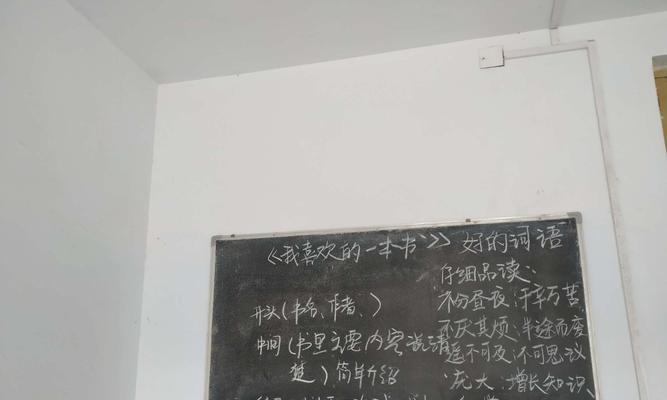 《我喜欢的一本书》 好的词语
仔细品读、
开头(书名、作者、)
不分昼夜;千辛万苦
不厌其烦;半途而废
中间(书里主要内容说清
楚)简单介绍
遥不可及;不可思议
庞大;增长知识